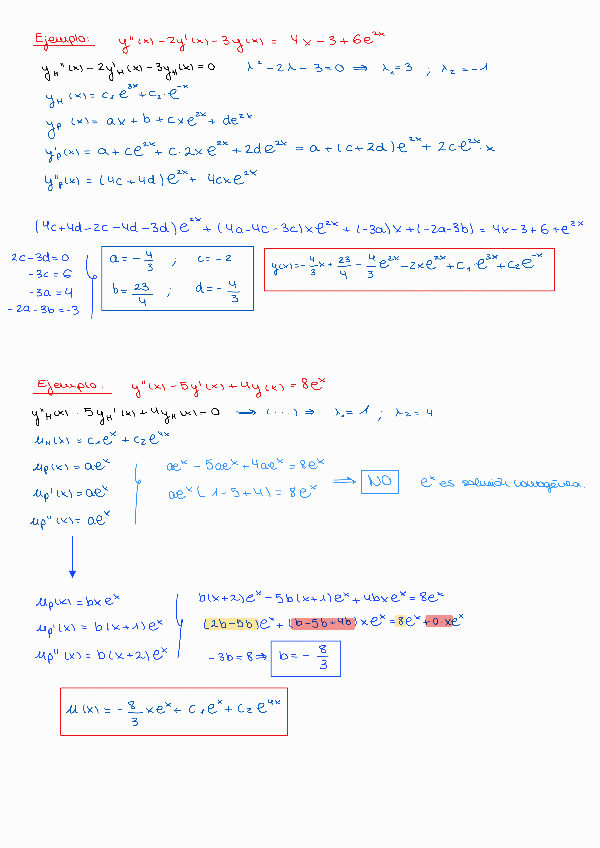 Ejemplo: y''(x) - 2y'(x) - 3y(x) = 4x - 3 + 6e^{2x}
y_H''(x) - 2y'_H(x) - 3y_H(x) = 0   λ² - 2λ - 3 = 0 ⇒ λ₁ = 3 ; λ₂ = -1
y_H(x) = c₁e^{3x} + c₂·e^{-x}
y_P(x) = ax + b + cxe^{2x} + de^{2x}
y'_P(x) = a + ce^{2x} + c·2xe^{2x} + 2de^{2x} = a + (c+2d)e^{2x} + 2ce^{2x}·x
y''_P(x) = (4c+4d)e^{2x} + 4cxe^{2x}
(4c+4d-2c-4d-3d)e^{2x} + (4a-4c-3c)xe^{2x} + (-3a)x + (-2a-3b) = 4x-3+6+e^{2x}
2c-3d=0
-3c=6
-3a=4
-2a-3b=-3
a = -4/3 ; c = -2
b = 23/4 ; d = -4/3
y(x) = -4/3 x + 23/4 - 4/3 e^{2x} - 2xe^{2x} + c₁·e^{3x} + c₂e^{-x}
Ejemplo: y''(x) - 5y'(x) + 4y(x) = 8e^x
y''_H(x) - 5y_H'(x) + 4y_H(x) = 0 → (...) ⇒ λ₁ = 1 ; λ₂ = 4
u_H(x) = c₁e^x + c₂e^{4x}
u_p(x) = ae^x
u_p'(x) = ae^x
u_p''(x) = ae^x
ae^x - 5ae^x + 4ae^x = 8e^x
ae^x(1-5+4) = 8e^x ⇒ NO   e^x es solución homogénea.
u_p(x) = bxe^x
u_p'(x) = b(x+1)e^x
u_p''(x) = b(x+2)e^x
b(x+2)e^x - 5b(x+1)e^x + 4bxe^x = 8e^x
(2b-5b)e^x + (b-5b+4b)xe^x = 8e^x + 0·xe^x
-3b = 8 ⇒ b = -8/3
u(x) = -8/3 xe^x + c₁e^x + c₂e^{4x}